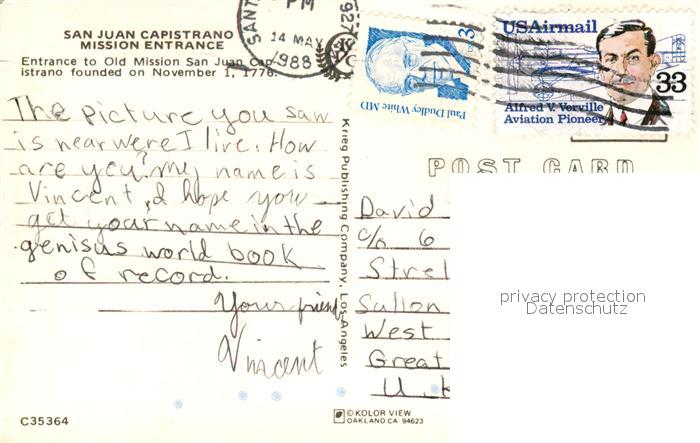 SAN JUAN CAPISTRANO
MISSION ENTRANCE
Entrance to Old Mission San Juan Cap-
istrano founded on November 1, 1776.
The picture you saw
is near were I live. How
are you? My name is
Vincent, I hope you
get your name in the
genisus world book
of record.
Your friend
Vincent
C35364
Krieg Publishing Company, Los Angeles
© KOLOR VIEW
OAKLAND CA 94623
SANT
PM
14 MAY
1988
927
Paul Dudley White MD
3
USAirmail
33
Alfred V. Verville
Aviation Pioneer
POST CARD
David
c/o 6
Stret
Sutton
West
Great
U.K
privacy protection
Datenschutz